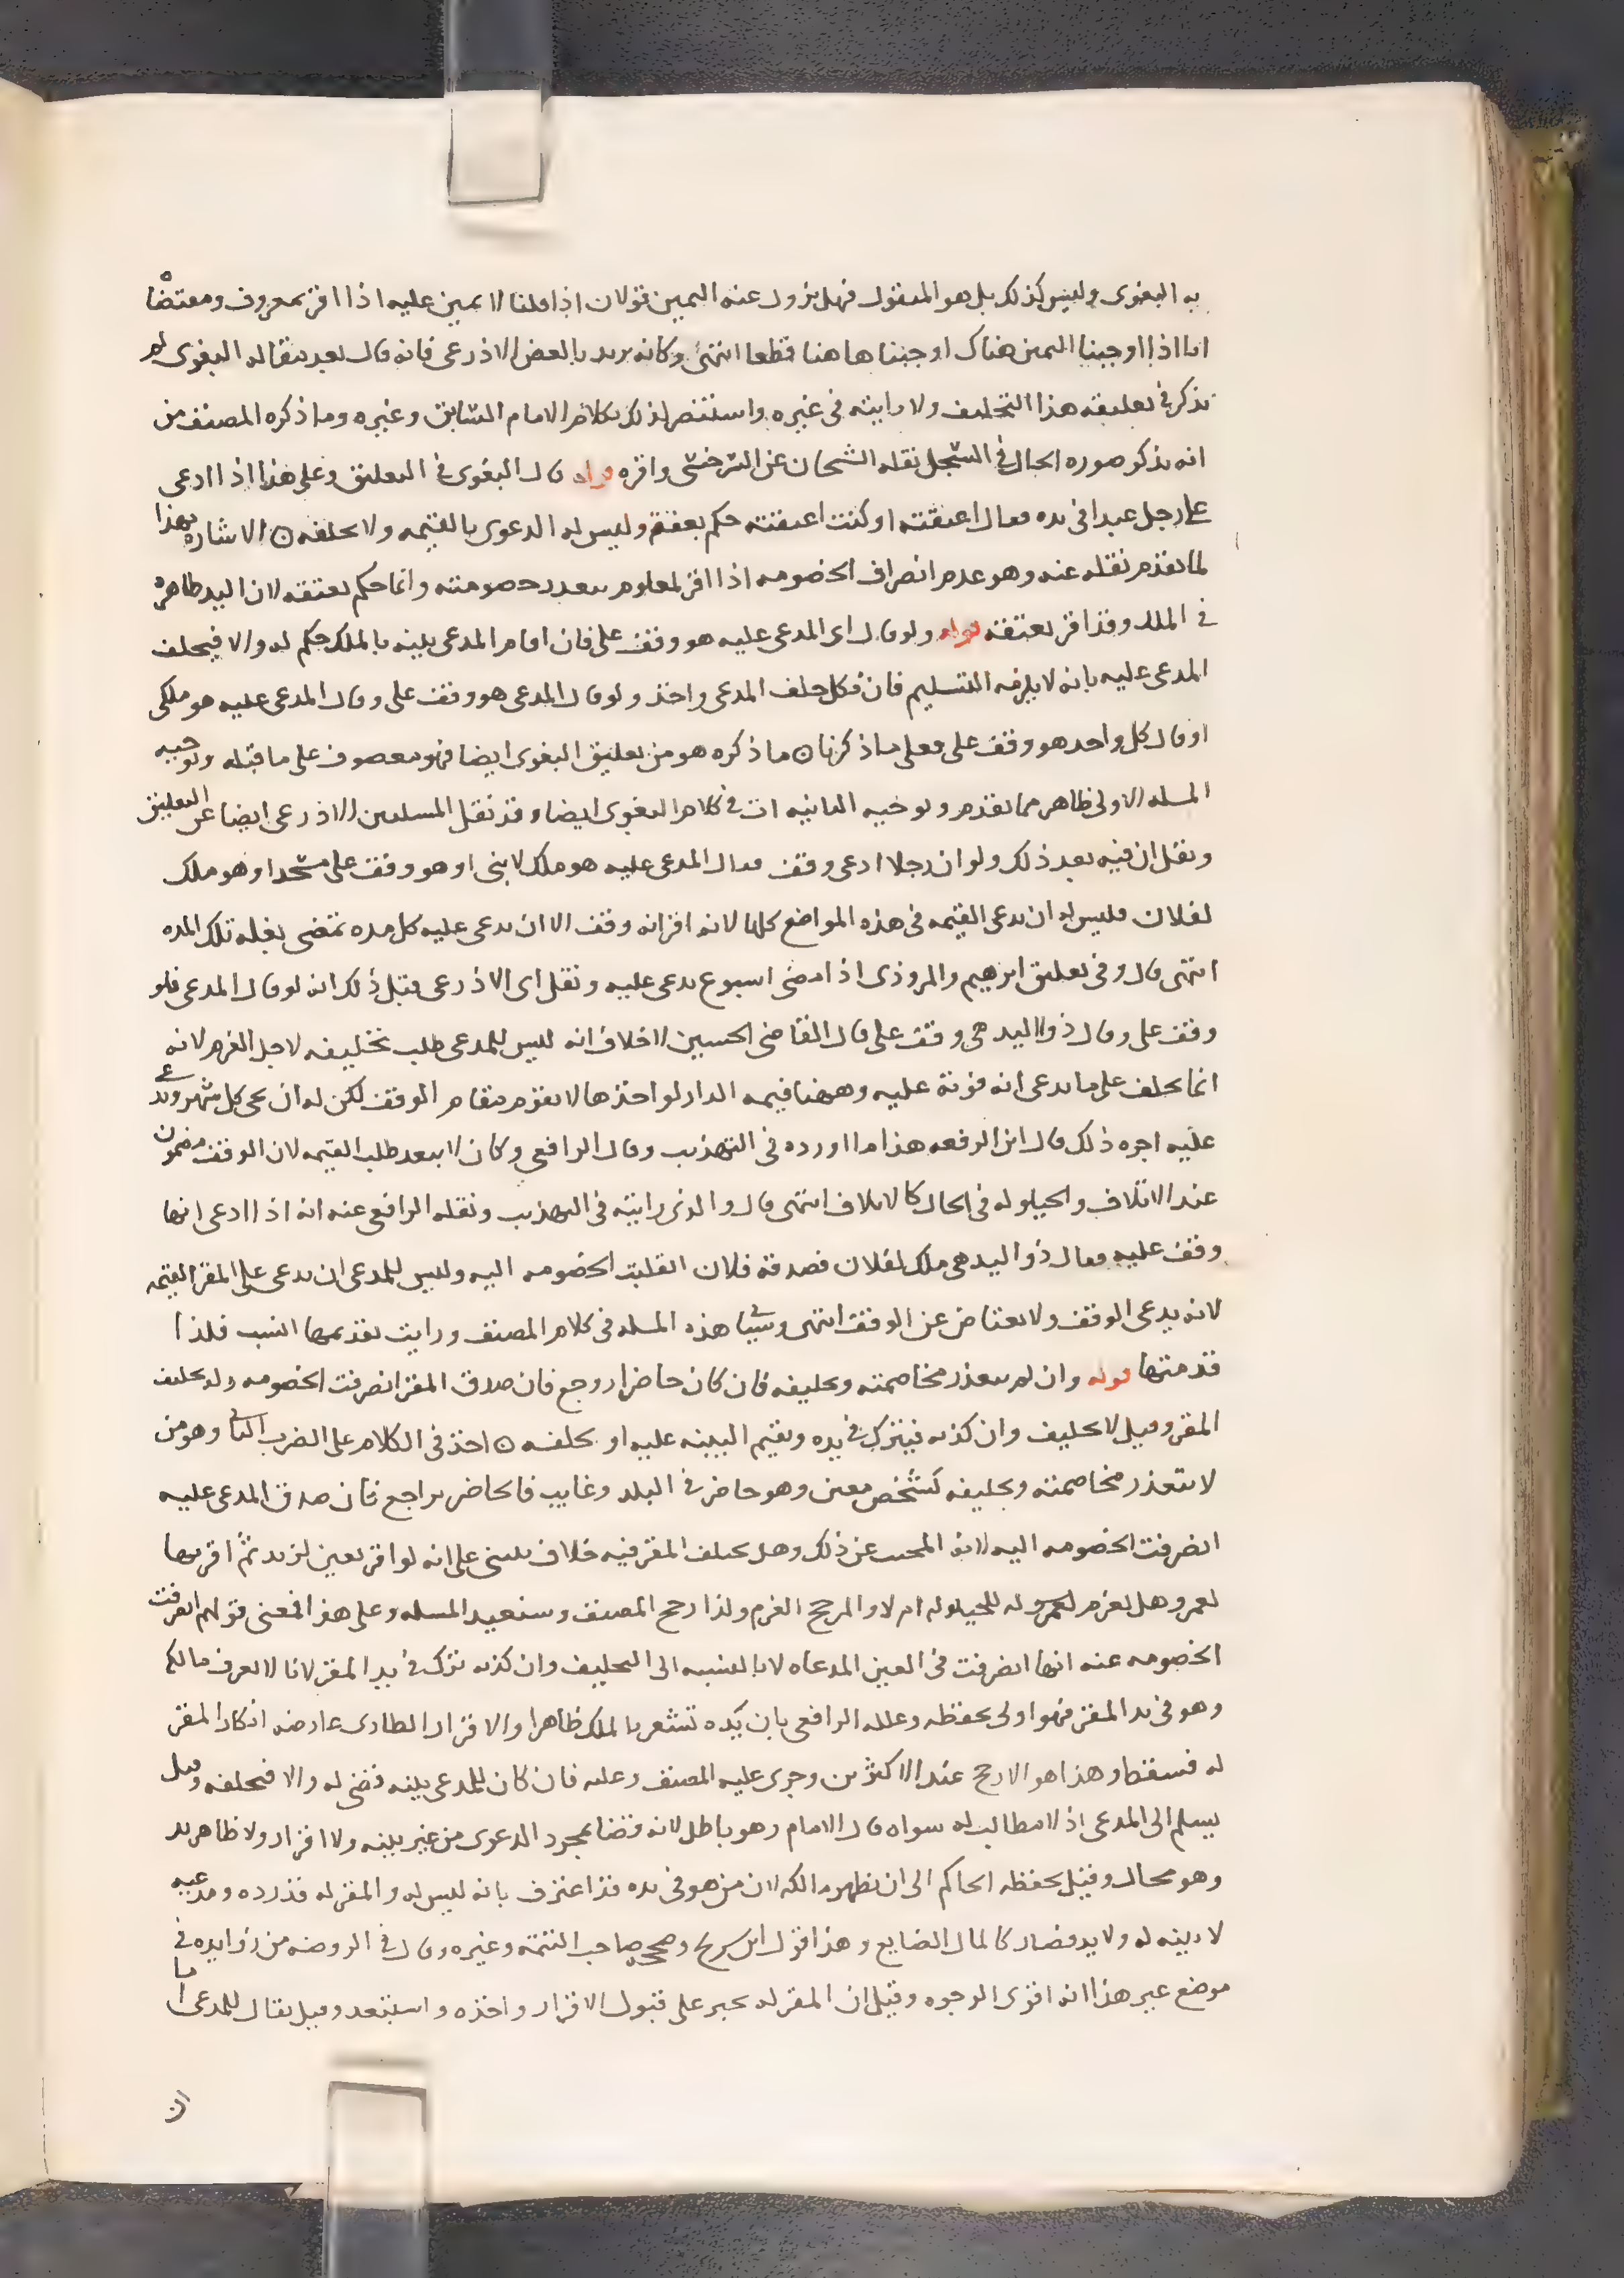 به البغوى وليس كذلك بل هو المنقول فهل يزول عنه اليمين قولان اذا قلنا لا يمين عليه اذا اقر بمعروف ومقتضاه
اما اذا اوجبنا اليمين هناك اوجبنا ها هنا قطعا انتهى وكانه يريد بالبعض الاذرعى فانه قال بعد مقاله البغوى لم
يذكر فى تعليقه هذا التحليف ولا رايته فى غيره واستنصر لذلك بكلام الامام السابق وغيره وما ذكره المصنف من
انه يذكر صوره الحال فى السجل نقله الشيخان عن السرخسى واقره قوله قال البغوى فى التعليق وعلى هذا اذا ادعى
على رجل عبدا فى يده فقال اعتقته او كنت اعتقته حكم بعتقه وليس له الدعوى بالقيمه ولا يحلفه ن الاشاره بهذا
لما تقدم نقله عنه وهو عدم انصراف الخصومه اذا اقر لمعلوم يتعذر خصومته وانما حكم بعتقه لان اليد ظاهره
فى الملك وقد اقر بعتقه قوله ولو قال اى المدعى عليه هو وقف على فان اقام المدعى بينه بالملك حكم له والا فيحلف
المدعى عليه بانه لا يلزمه التسليم فان نكل حلف المدعى واخذ ولو قال المدعى هو وقف على وقال المدعى عليه هو ملكى
او قال كل واحد هو وقف على فعلى ما ذكرنا ن ما ذكره هو من تعليق البغوى ايضا فهو معطوف على ما قبله وتوجيه
المسله الاولى ظاهر مما تقدم وتوجيه الثانيه ات فى كلام البغوى ايضا وقد نقل المسلتين الاذرعى ايضا عن التعليق
ونقل ان فيه بعد ذلك ولو ان رجلا ادعى وقف فقال المدعى عليه هو ملك لابنى او هو وقف على مسجد او هو ملك
لفلان فليس له ان يدعى القيمه فى هذه المواضع كلها لانه اقر انه وقف الا ان يدعى عليه كل مده تمضى بغله تلك المده
انتهى قال وفى تعليق ابرهيم والمروذى اذا مضى اسبوع يدعى عليه ونقل اى الاذرعى قبل ذلك انه لو قال المدعى فلو
وقف على وقال ذو اليد هى وقف على قال القاضى الحسين لا خلاف انه ليس للمدعى طلب تحليفه لاجل الغرم لانه
انما يحلف على ما يدعى انه فوته عليه وههنا قيمه الدار لو اخذها لا تقوم مقام الوقف لكن له ان يجى كل شهر ويدعى
عليه اجره ذلك قال ابن الرفعه هذا ما اورده فى التهذيب وقال الرافعى وكان لا يبعد طلب القيمه لان الوقف مضمون
عند الاتلاف والحيلوله فى الحال كالاتلاف انتهى قال والذى رايته فى التهذيب ونقله الرافعى عنه انه اذا ادعى انها
وقف عليه فقال ذو اليد هى ملك لفلان فصدقه فلان انقلبت الخصومه اليه وليس للمدعى ان يدعى على المقر القيمه
لانه يدعى الوقف ولا يعتاض عن الوقف انتهى وستاتى هذه المسله فى كلام المصنف ورايت تقديمها انسب فلذا
قدمتها قوله وان لم يتعذر مخاصمته وتحليفه فان كان حاضرا روجع فان صدق المقر انصرفت الخصومه وله تحليف
المقر وقيل لا تحليف وان كذبه فيترك فى يده ويقيم البينه عليه او يحلفه ن اخذ فى الكلام على الضرب الثانى وهو من
لا يتعذر مخاصمته وتحليفه كشخص معين وهو حاضر فى البلد وغايب فالحاضر يراجع فان صدق المدعى عليه
انصرفت الخصومه اليه لانه المجيب عن ذلك وهل يحلف المقر فيه خلاف ينبنى على انه لو اقر بعين لزيد ثم اقر بها
لعمرو هل يغرم لعمرو له للحيلوله ام لا والمرجح الغرم ولذا رجح المصنف وسنعيد المسله وعلى هذا فمعنى قولهم انصرفت
الخصومه عنه انها انصرفت فى العين المدعاه لا بالنسبه الى التحليف وان كذبه ترك فى يد المقر لانا لا نعرف مالكها
وهو فى يد المقر فهو اولى بحفظه وعلله الرافعى بان يده تشعر بالملك ظاهرا والاقرار الطارى عارضه انكار المقر
له فسقط وهذا هو الارجح عند الاكثرين وجرى عليه المصنف وعليه فان كان للمدعى بينه قضى له والا فيحلفه وقيل
يسلم الى المدعى اذ لا مطالب له سواه قال الامام وهو باطل لانه قضا بمجرد الدعوى من غير بينه ولا اقرار ولا ظاهر يد
وهو محال وقيل يحفظه الحاكم الى ان يظهر مالكه لان من هو فى يده قد اعترف بانه ليس له والمقر له قد رده ومدعيه
لا بينه له ولا يد فصار كالمال الضايع وهذا قول ابن سريج وصححه صاحب التتمه وغيره وقال فى الروضه من زوايده فى
موضع غير هذا انه اقوى الوجوه وقيل ان المقر له يجبر على قبول الاقرار واخذه واستبعد وقيل يقال للمدعى اما
ان